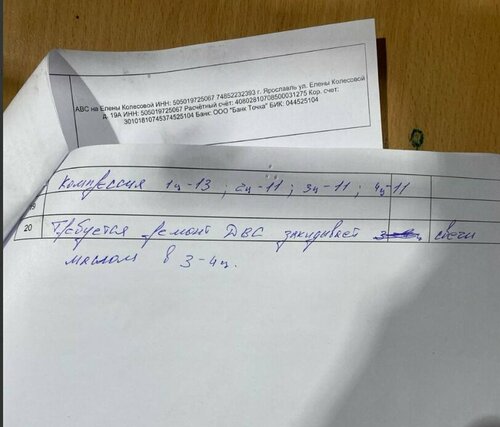 АВС на Елены Колесовой ИНН: 505019725067 74852232393 г. Ярославль ул. Елены Колесовой
д. 19А ИНН: 505019725067 Расчётный счёт: 40802810708500031275 Кор. счет:
30101810745374525104 Банк: ООО "Банк Точка" БИК: 044525104
Компрессия 1ц-13 ; 2ц-11 ; 3ц-11 ; 4ц-11
20 Требуется ремонт ДВС закидывает свечи
маслом в 3-4ц.